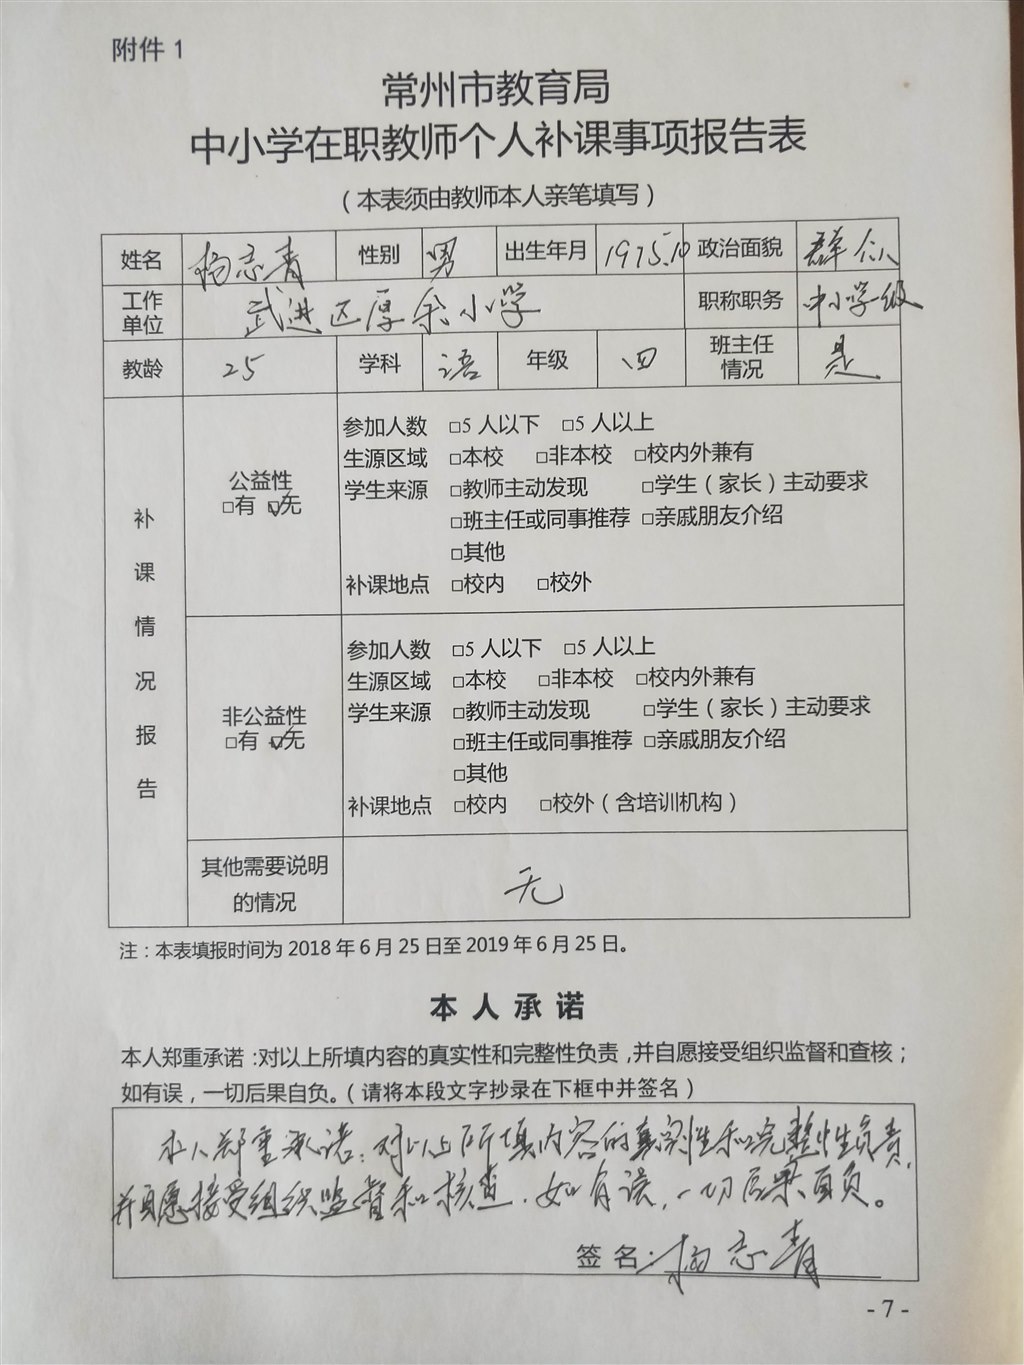 附件 1
常州市教育局
中小学在职教师个人补课事项报告表
（本表须由教师本人亲笔填写）
姓名 杨志青 性别 男 出生年月 1975.10 政治面貌 群众
工作单位 武进区厚余小学 职称职务 中小学级
教龄 25 学科 语 年级 四 班主任情况 是
补课情况报告
公益性
□有 ☑无
参加人数 □5 人以下 □5 人以上
生源区域 □本校 □非本校 □校内外兼有
学生来源 □教师主动发现 □学生（家长）主动要求
□班主任或同事推荐 □亲戚朋友介绍
□其他
补课地点 □校内 □校外
非公益性
□有 ☑无
参加人数 □5 人以下 □5 人以上
生源区域 □本校 □非本校 □校内外兼有
学生来源 □教师主动发现 □学生（家长）主动要求
□班主任或同事推荐 □亲戚朋友介绍
□其他
补课地点 □校内 □校外（含培训机构）
其他需要说明
的情况
无
注：本表填报时间为 2018 年 6 月 25 日至 2019 年 6 月 25 日。
本人承诺
本人郑重承诺：对以上所填内容的真实性和完整性负责，并自愿接受组织监督和查核；
如有误，一切后果自负。（请将本段文字抄录在下框中并签名）
本人郑重承诺：对以上所填内容的真实性和完整性负责，
并自愿接受组织监督和核查．如有误，一切后果自负。
签名：杨志青
- 7 -